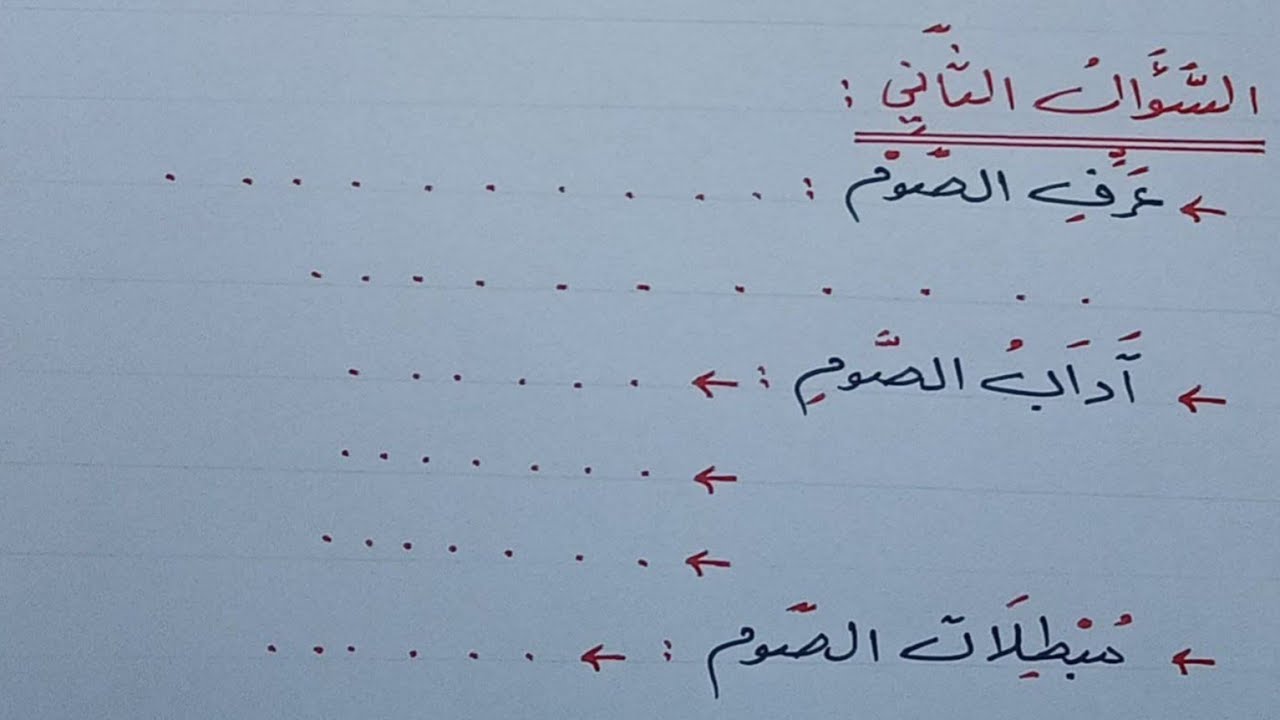 السَّؤَالُ الثَّانِي :
← عَرِّفِ الصَّوْم : . . . . . . . . . .
. . . . . . . . . . .
← آدَابُ الصَّومِ : ← . . . . . .
← . . . . . . .
← . . . . . . .
← مُبْطِلَات الصَّوم : ← . . . . . .